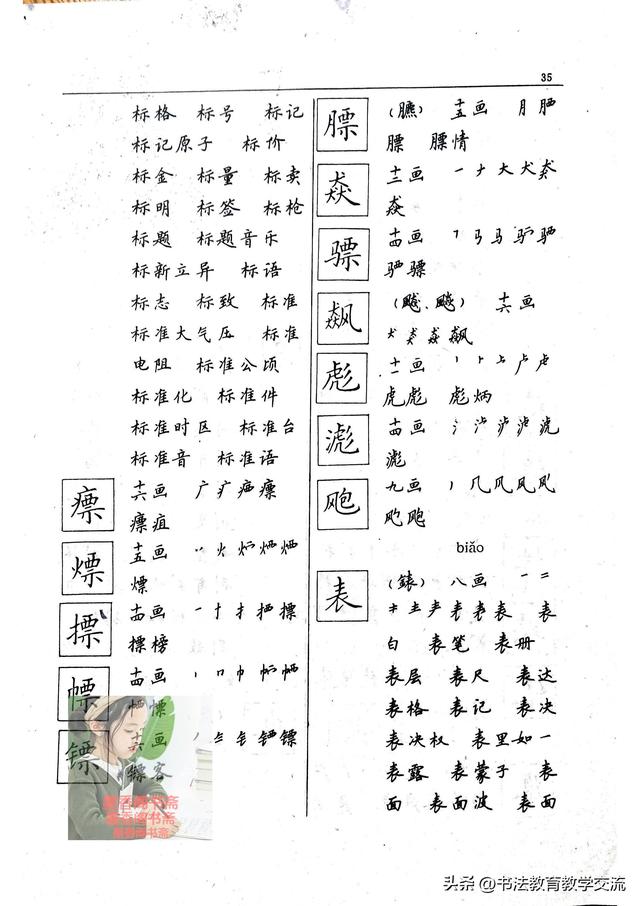 35
标格 标号 标记
标记原子 标价
标金 标量 标卖
标明 标签 标枪
标题 标题音乐
标新立异 标语
标志 标致 标准
标准大气压 标准
电阻 标准公顷
标准化 标准件
标准时区 标准台
标准音 标准语
瘭 十六画 广 疒 瘭
瘭疽
熛 十五画 火
熛
摽 十四画 一 十 扌 摽
摽榜
幖 十四画 丨 冂 巾
幖
镖 画 钅 镖
镖客
膘 (臕) 十五画 月
膘 膘情
猋 十二画 一 ナ 大 犬
猋
骠 十四画 马
骠
飙 (飚、飈) 十六画
犬 猋 飙
彪 十一画 丨 卜
虎 彪 彪炳
滮 十四画 氵
滮
飑 九画 丿 几 风
飑
biǎo
表 (錶) 八画 一 二
表 表
白 表笔 表册
表层 表尺 表达
表格 表记 表决
表决权 表里如一
表露 表蒙子 表
面 表面波 表面
墨香阁书斋
墨香阁书斋
墨香阁书斋
头条 @书法教育教学交流